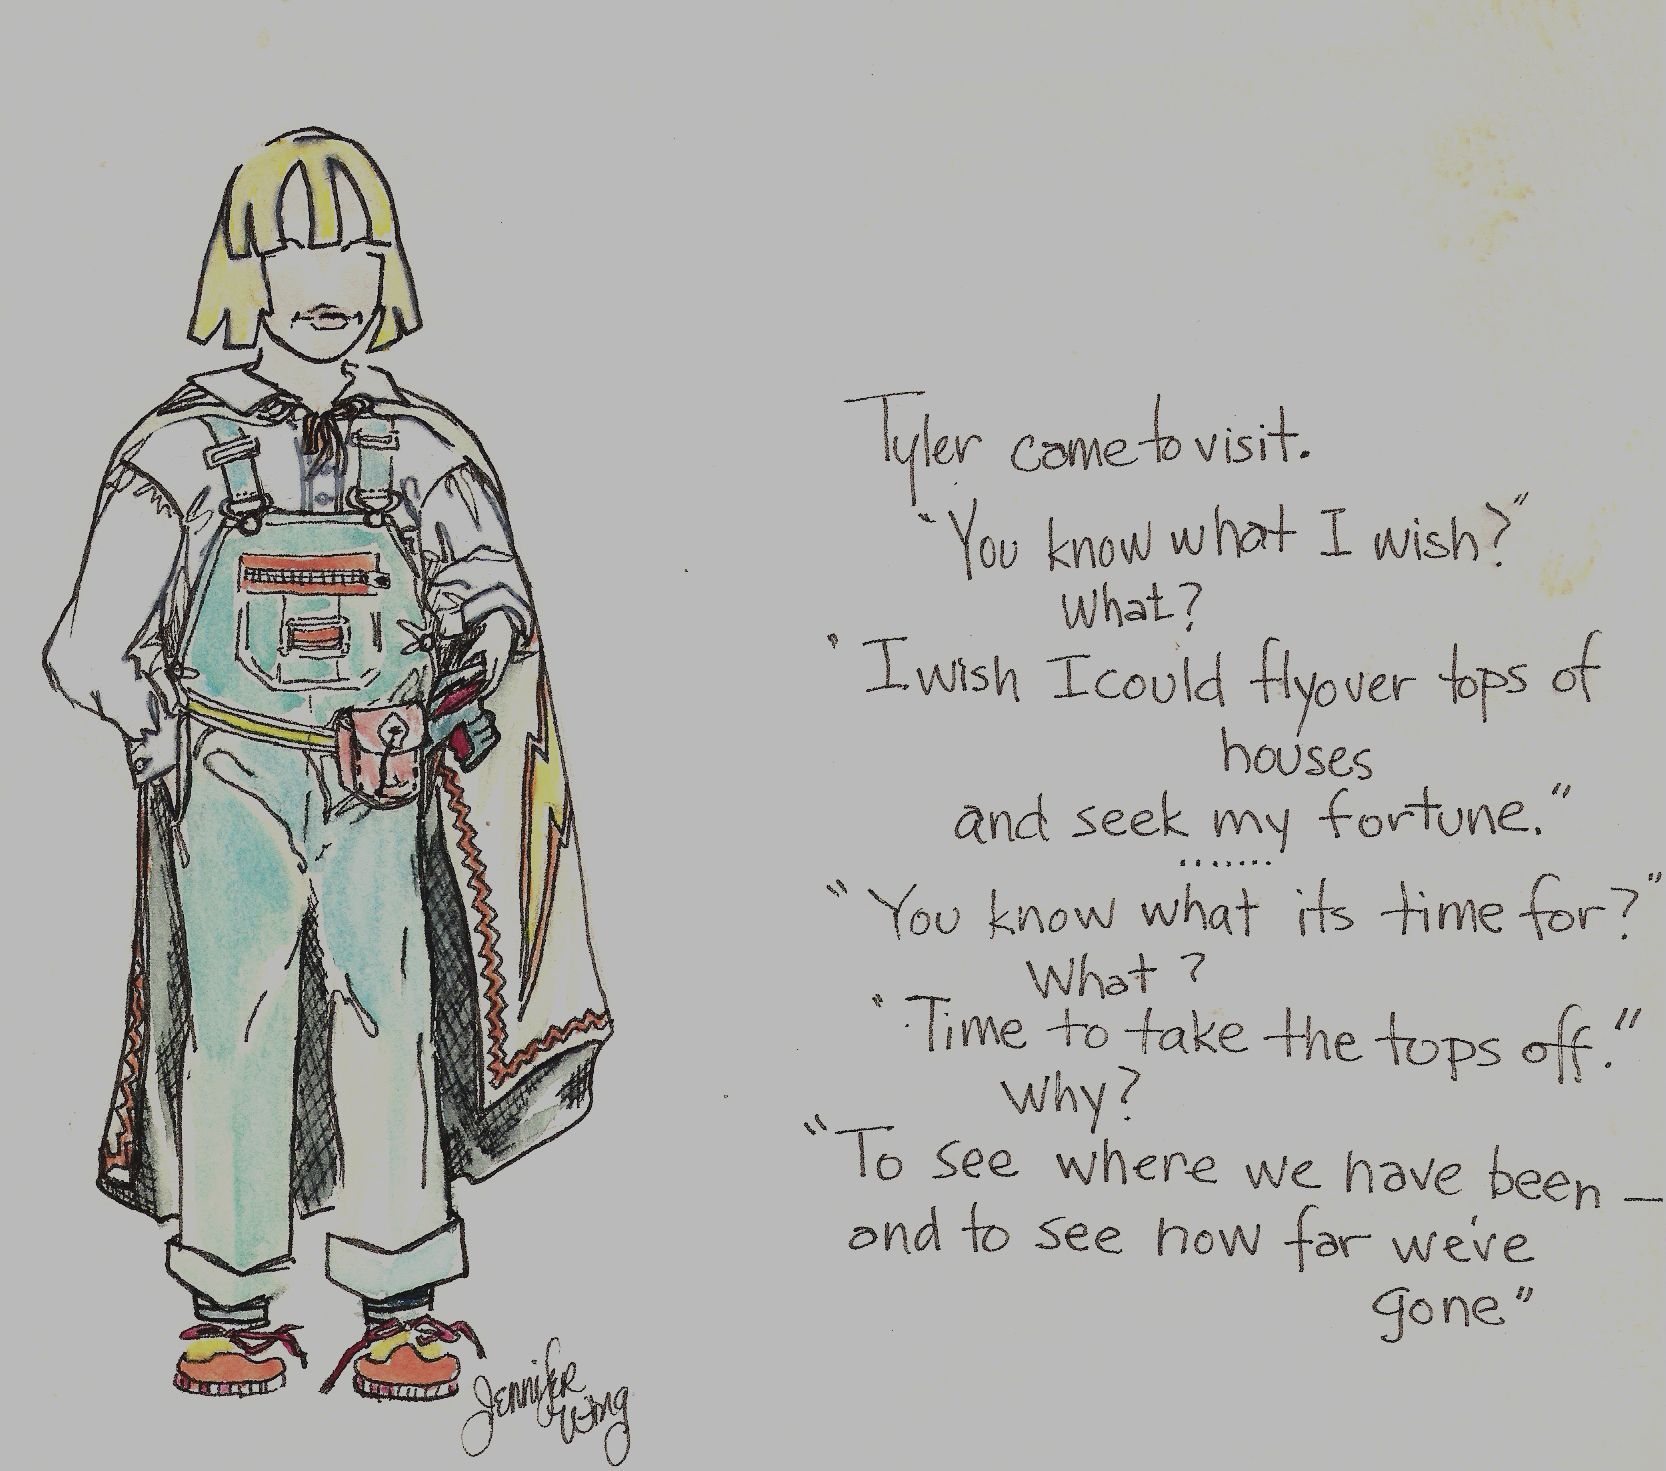 Tyler came to visit.
"You know what I wish?"
What?
"I wish I could fly over tops of
houses
and seek my fortune."
.......
"You know what its time for?"
What?
"Time to take the tops off."
Why?
"To see where we have been —
and to see how far we've
gone"
Jennifer
Wing